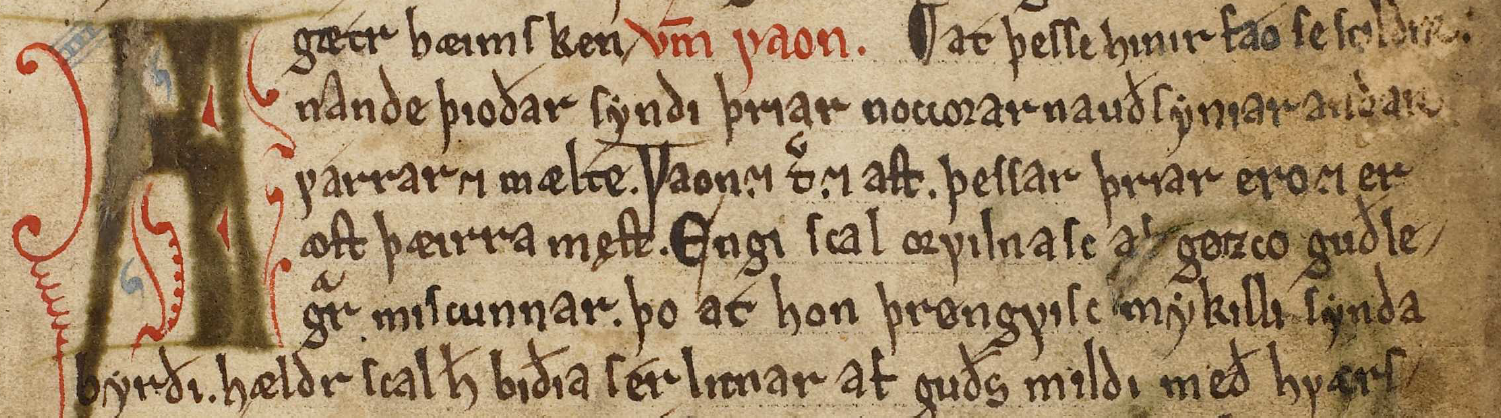 gætr hæimsken/ vm̄ ƿaon. At þesse hinir sao se
nande þioðar syndi þriar noccorar nauðsyniar andar
ƿarrar ⁊ mælte. Ƿaon ⁊ tͦ ⁊ ast. þessar þriar ero ⁊ er
ast þæirra męst. Engi scal orƿilnasc af gøzco guðle/
gͣr miscunnar. þo at hon þrøngƿisc mykilli synda
byrði. hældr scal h̄ biðia ser licnar at guðs mildi með hƿærs/